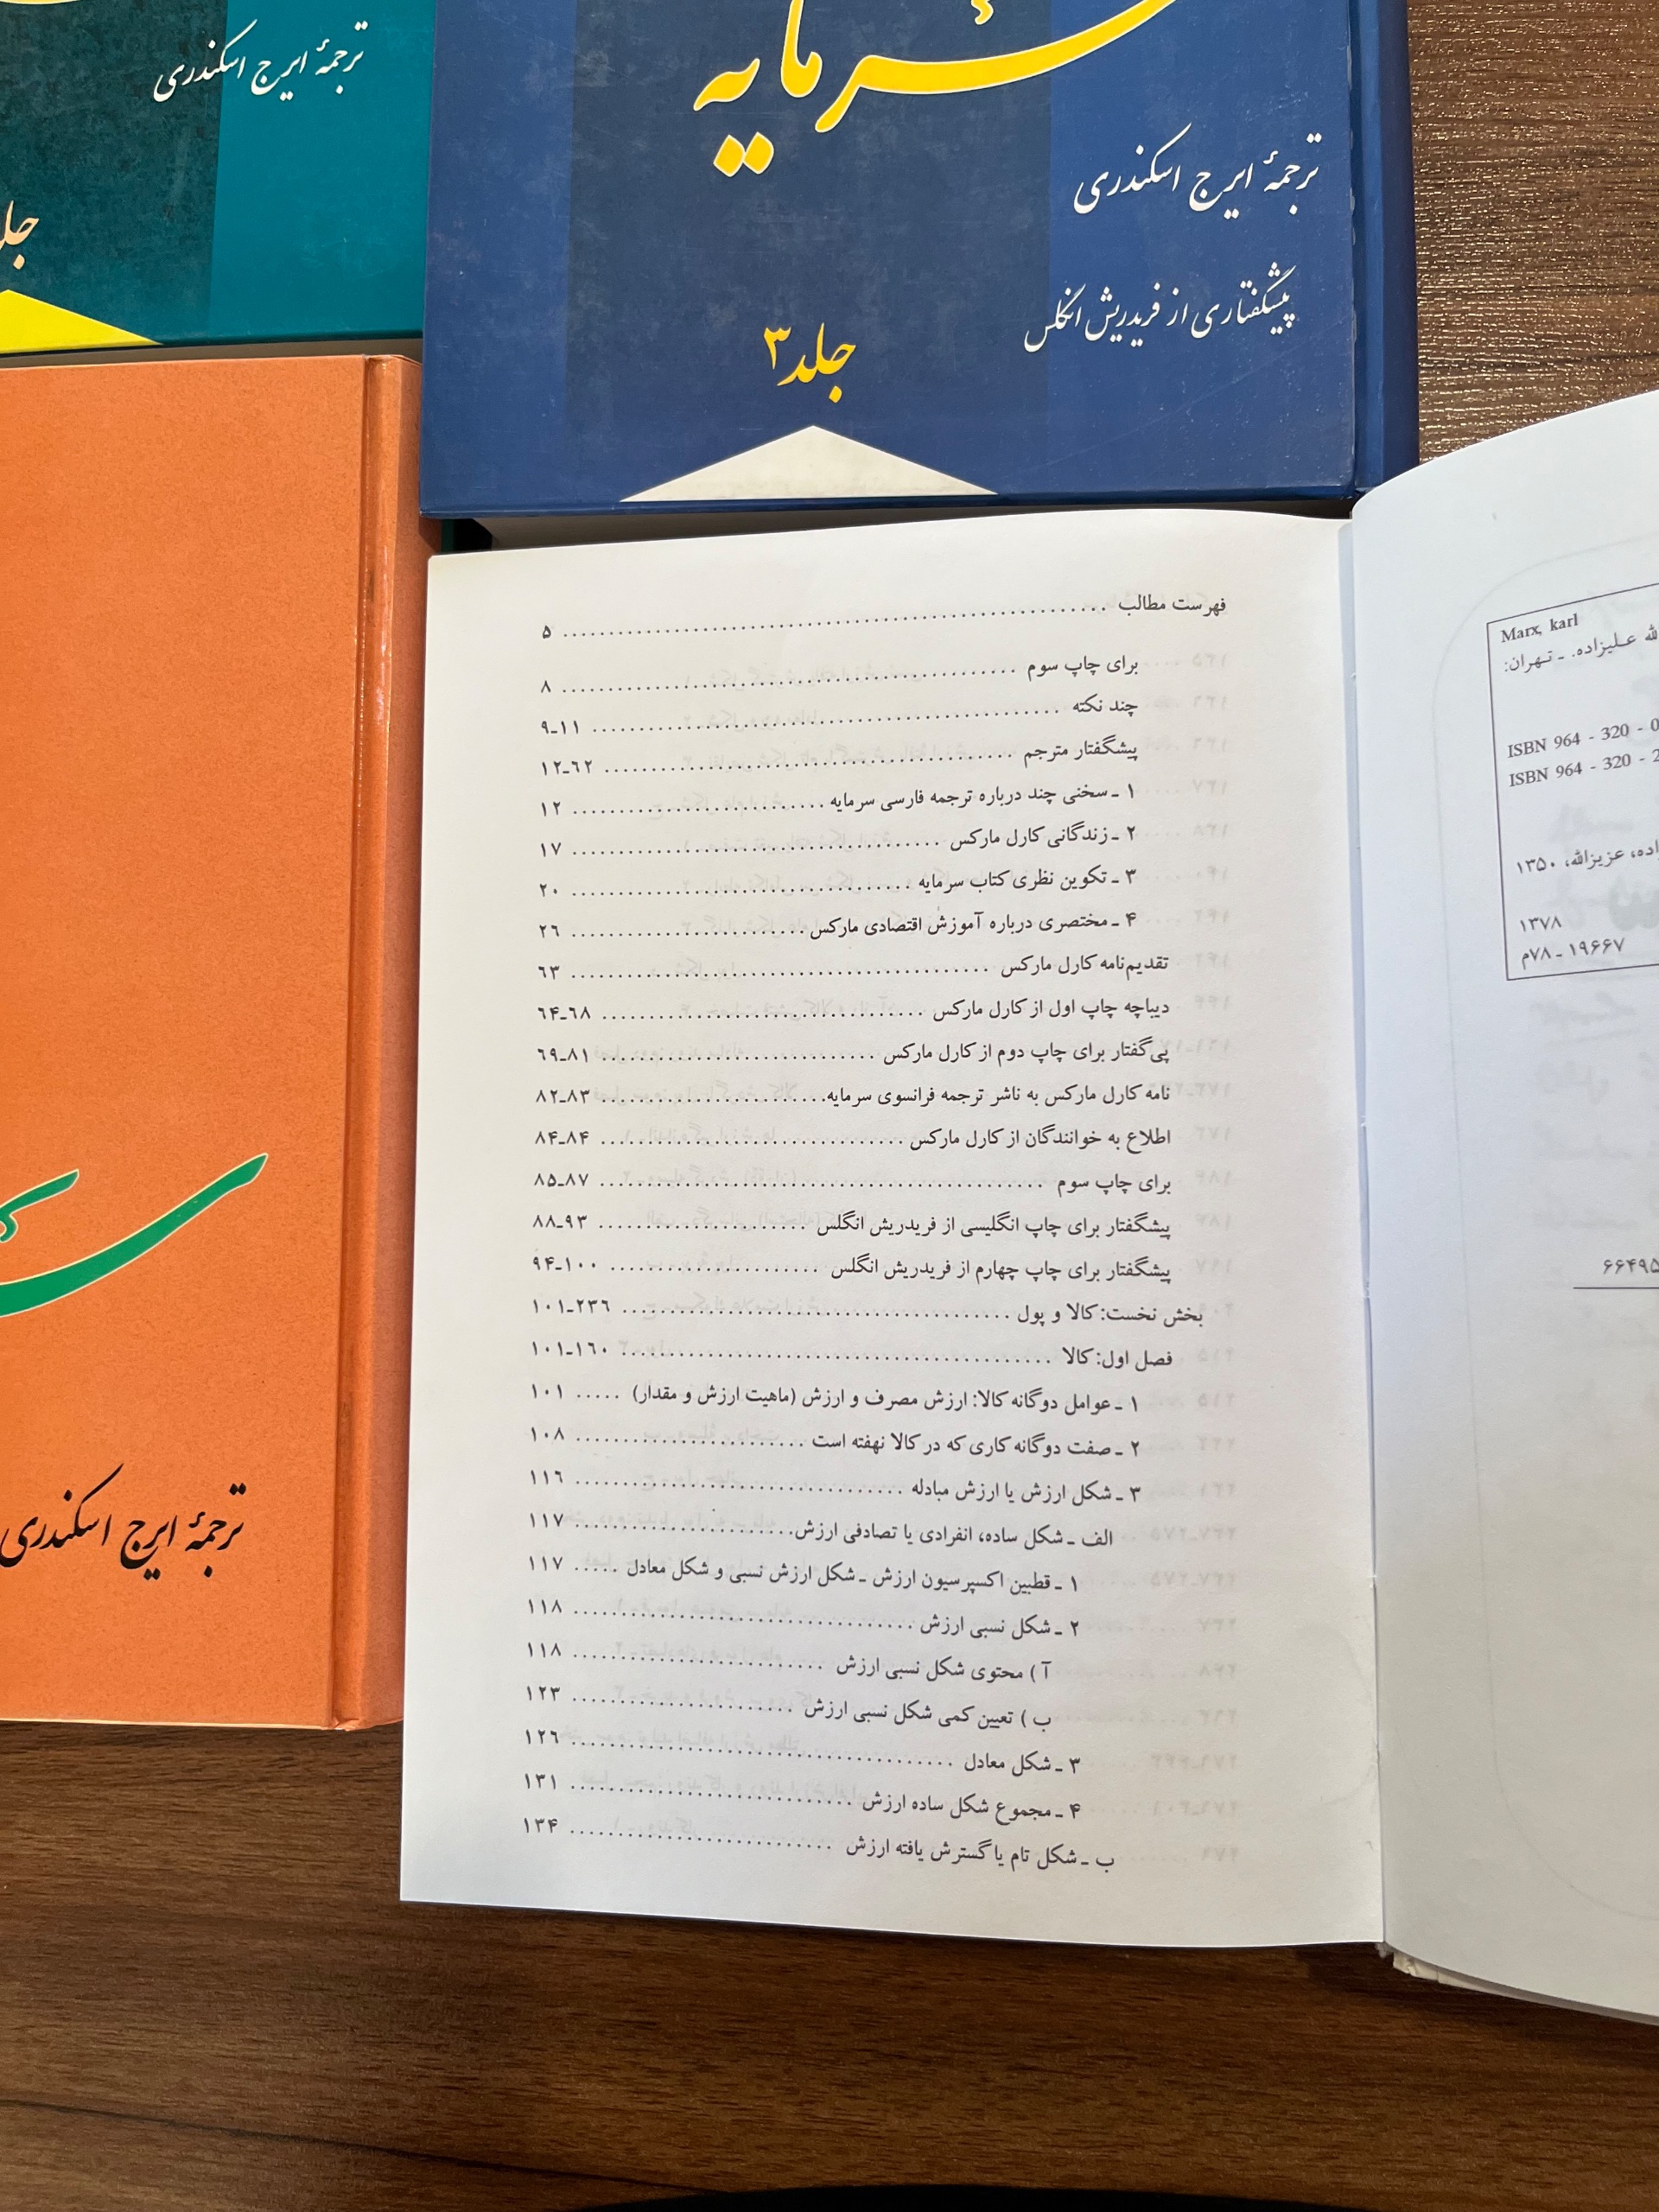 ترجمهٔ ایرج اسکندری
سرمایه
ترجمهٔ ایرج اسکندری
پیشگفتاری از فریدریش انگلس
جلد ۳
ترجمهٔ ایرج اسکندری
فهرست مطالب ........ ۵
برای چاپ سوم ........ ۸
چند نکته ........ ۹-۱۱
پیشگفتار مترجم ........ ۱۲-۶۲
۱ ـ سخنی چند درباره ترجمه فارسی سرمایه ........ ۱۲
۲ ـ زندگانی کارل مارکس ........ ۱۷
۳ ـ تکوین نظری کتاب سرمایه ........ ۲۰
۴ ـ مختصری درباره آموزش اقتصادی مارکس ........ ۲۶
تقدیم‌نامه کارل مارکس ........ ۶۳
دیباچه چاپ اول از کارل مارکس ........ ۶۴-۶۸
پی‌گفتار برای چاپ دوم از کارل مارکس ........ ۶۹-۸۱
نامه کارل مارکس به ناشر ترجمه فرانسوی سرمایه ........ ۸۲-۸۳
اطلاع به خوانندگان از کارل مارکس ........ ۸۴-۸۴
برای چاپ سوم ........ ۸۵-۸۷
پیشگفتار برای چاپ انگلیسی از فریدریش انگلس ........ ۸۸-۹۳
پیشگفتار برای چاپ چهارم از فریدریش انگلس ........ ۹۴-۱۰۰
بخش نخست: کالا و پول ........ ۱۰۱-۲۳۶
فصل اول: کالا ........ ۱۰۱-۱۶۰
۱ ـ عوامل دوگانه کالا: ارزش مصرف و ارزش (ماهیت ارزش و مقدار) ..... ۱۰۱
۲ ـ صفت دوگانه کاری که در کالا نهفته است ........ ۱۰۸
۳ ـ شکل ارزش یا ارزش مبادله ........ ۱۱۶
الف ـ شکل ساده، انفرادی یا تصادفی ارزش ........ ۱۱۷
۱ ـ قطبین اکسپرسیون ارزش ـ شکل ارزش نسبی و شکل معادل ..... ۱۱۷
۲ ـ شکل نسبی ارزش ........ ۱۱۸
آ ) محتوی شکل نسبی ارزش ........ ۱۱۸
ب ) تعیین کمی شکل نسبی ارزش ........ ۱۲۳
۳ ـ شکل معادل ........ ۱۲۶
۴ ـ مجموع شکل ساده ارزش ........ ۱۳۱
ب ـ شکل تام یا گسترش یافته ارزش ........ ۱۳۴
Marx, karl
علیزاده. ـ تهران:
ISBN 964 - 320 - 0
ISBN 964 - 320 - 2
عزیزالله، ۱۳۵۰
۱۳۷۸
۱۹۶۶۷ ـ ۷۸م
۶۶۴۹۵